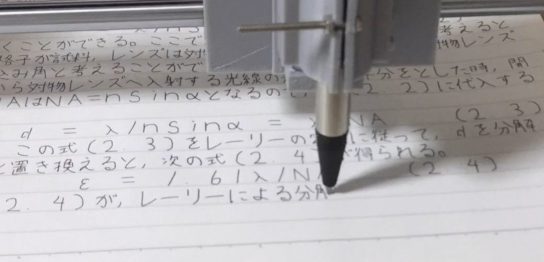 くことができる。ここで 考えると
格子が試料、レンズは対物 物レンズ
込み角と考えることがで
から対物レンズへ入射する光線の 分をとした時、開
NAはNA=nSinαとなるの 2. 2)に代入する
d = λ/nSinα = NA (2. 3)
この式(2. 3)をレーリーの に従って、dを分解
と置き換えると、次の式(2. 4 が得られる。
ε = 1. 61λ/NA (2. 4)
2. 4)が、レーリーによる分解